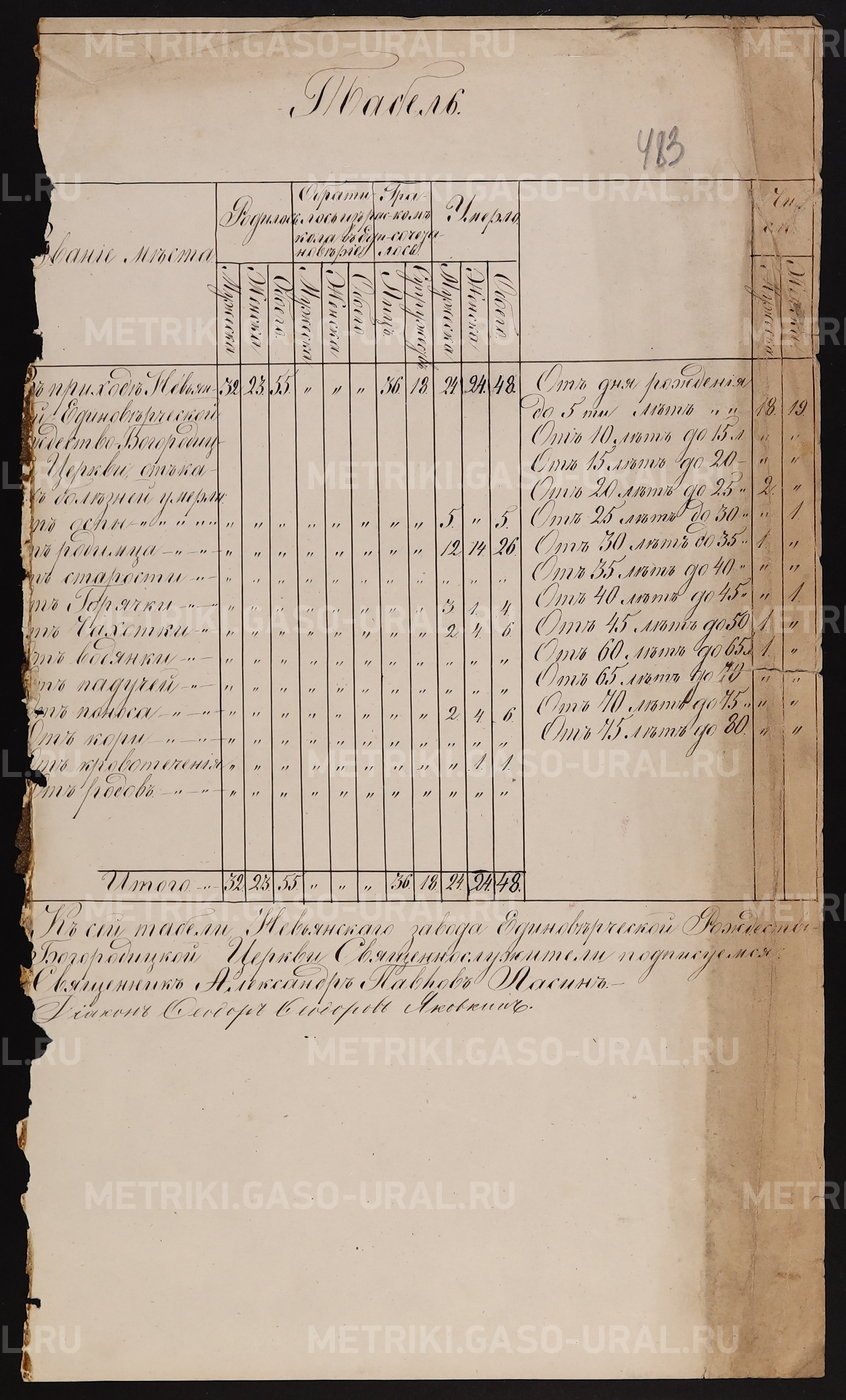 Табель.
483
Званіе мѣста
Родилось
Обрати-
лось изъ рас-
кола въ Еди-
новѣріе
Бра-
комъ
сочета-
лось
Умерло
Чи
сл
Мужска
Женска
Обоего
Мужска
Женска
Обоего
Лицъ
Супружествъ
Мужска
Женска
Обоего
Мужска
Женска
ъ приходѣ Невьян- 32. 23. 55. „ „ „ 36. 18. 24. 24. 48. Отъ дня рожденія
й Единовѣрческой до 5 ти лѣтъ „ „ 18. 19
ждество-Богородиц- Отъ 10 лѣтъ до 15 л „ „
Церкви, отъ ка- Отъ 15 лѣтъ до 20 – „ „
хъ болѣзней умерли Отъ 20 лѣтъ до 25 „ 2. „
тъ оспы – „ „ „ „ „ „ „ „ „ „ „ „ 5. „ 5. Отъ 25 лѣтъ до 30 „ „ 1
тъ родимца – „ – „ – „ „ „ „ „ „ „ „ 12. 14. 26. Отъ 30 лѣтъ до 35 „ 1. „
тъ старости – „ – „ „ „ „ „ „ „ „ „ „ „ Отъ 35 лѣтъ до 40 „ „ „
тъ Горячки – „ – „ „ „ „ „ „ „ „ „ 3. 1. 4 Отъ 40 лѣтъ до 45 „ „ 1.
тъ Чахотки – „ „ „ „ „ „ „ „ „ 2. 4. 6 Отъ 45 лѣтъ до 50 1. „
тъ водянки – „ – „ „ „ „ „ „ „ „ „ „ „ Отъ 60 лѣтъ до 65 л 1. „
тъ падучей – „ – „ „ „ „ „ „ „ „ „ „ „ Отъ 65 лѣтъ до 70 „ „
тъ поноса – „ – „ – „ „ „ „ „ „ „ „ 2. 4. 6 Отъ 70 лѣтъ до 75 „ „ „
Отъ кори – „ – „ – „ „ „ „ „ „ „ „ „ „ „ Отъ 75 лѣтъ до 80. „ „
Отъ кровотеченія „ „ „ „ „ „ „ „ „ 1. 1.
Отъ родовъ – „ – „ – „ „ „ „ „ „ „ „ „ „ „
Итого – „ – 32. 23. 55. „ „ „ 36. 18. 24. 24. 48.
Къ сей табели Невьянскаго завода Единовѣрческой Рождество-
Богородицкой Церкви Священнослужители подписуемся:
Священникъ Александръ Павловъ Ласинъ. –
Діаконъ Ѳеодоръ Ѳеодоровъ Яковкинъ.
METRIKI.GASO-URAL.RU